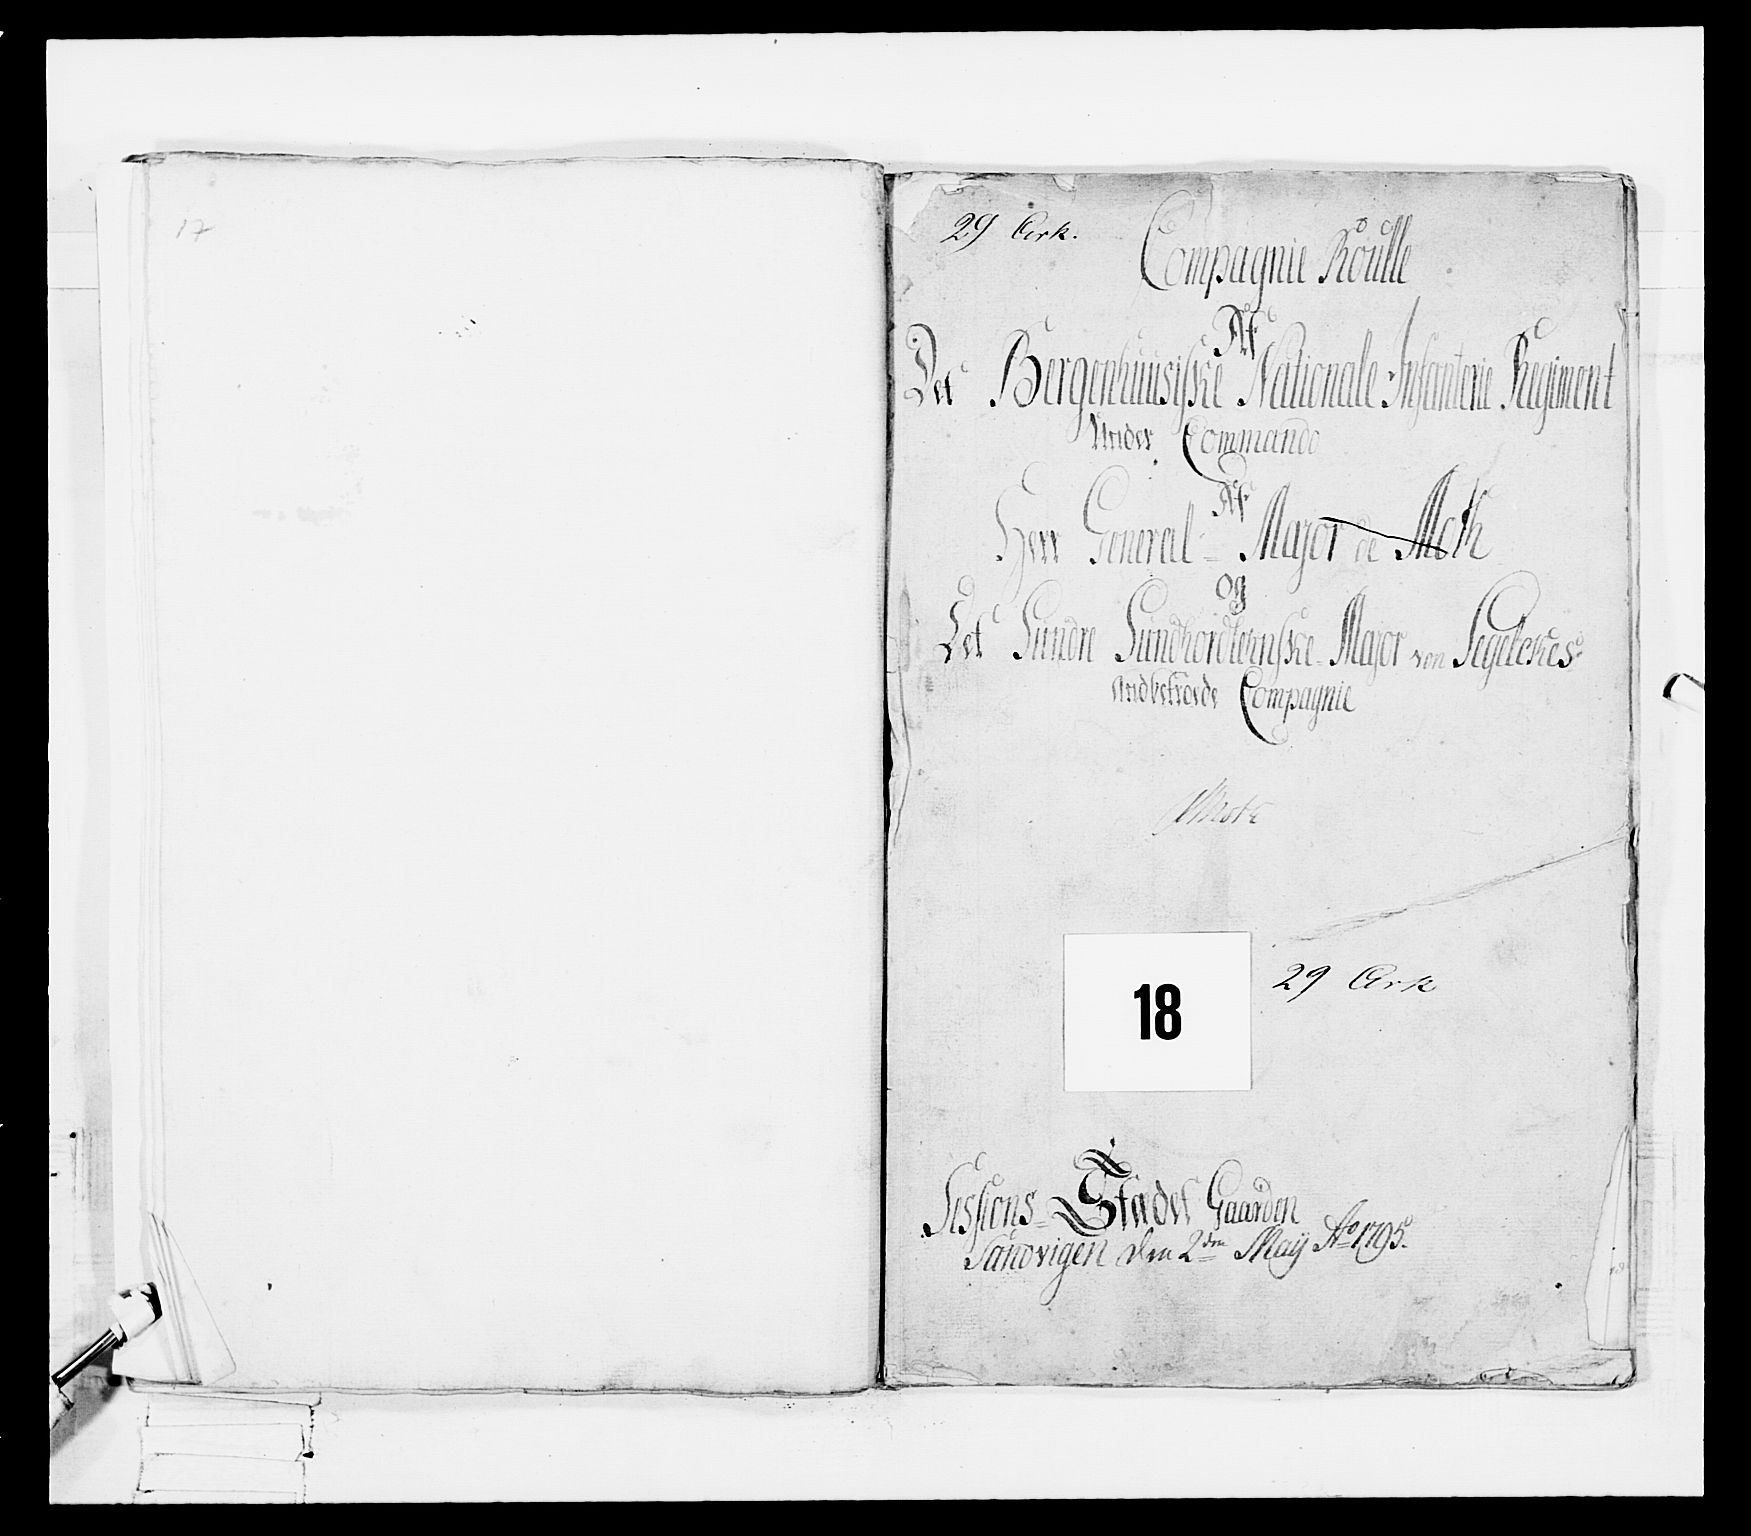 17
29 Ark.
Compagnie Roulle
Af
Det Bergenhuusiske Nationale Infanterie Regiment
Under Commando
Af
Herr General-Major de Mok
og
Det Søndre Søndhordlehnske Major von Segelckes
Andbetroede Compagnie
Mok
29 Ark
18
Sessions-Stædet Gaarden
Sandvigen den 2den Maÿ Ao 1795.